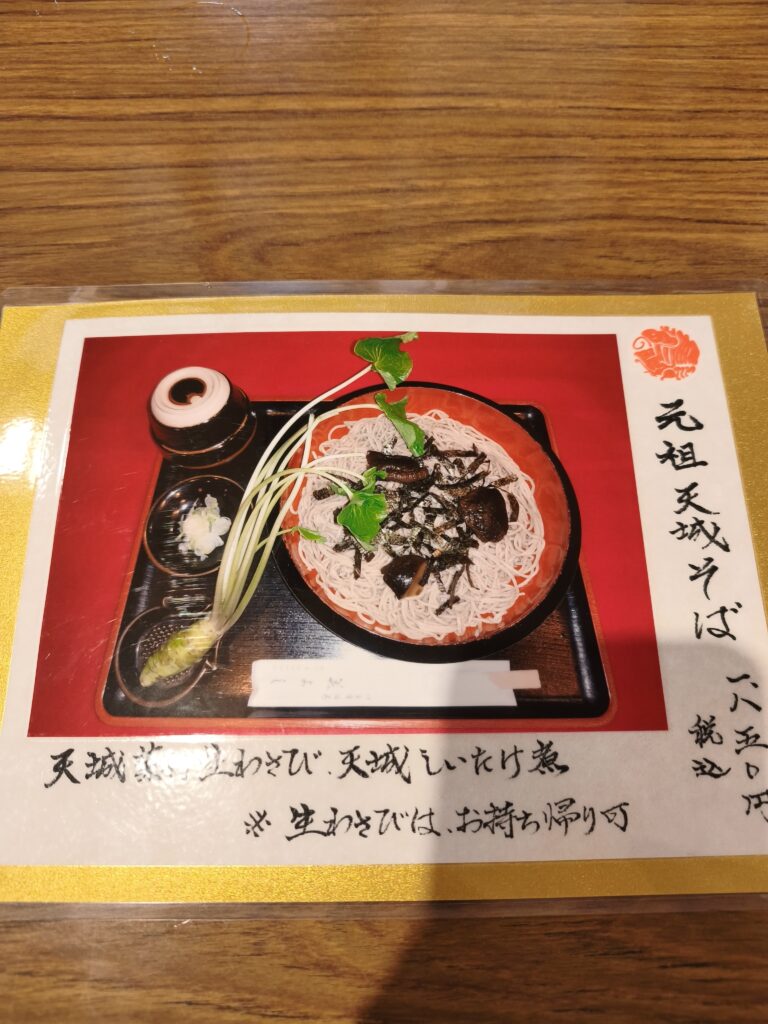 元祖 天城そば
一、八五〇円
税込
天城 生わさび、天城しいたけ煮
※ 生わさびは、お持ち帰り可